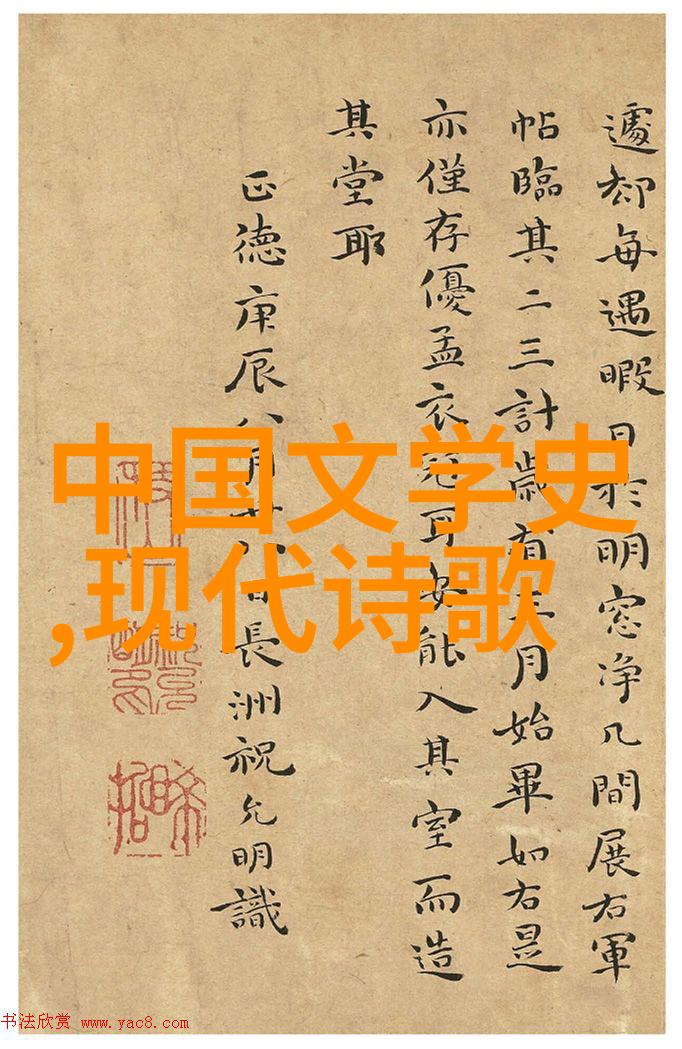 遽却每遇暇日於明窓净几間展右軍
帖臨其二三計歲有月始畢如右是
亦僅存優孟衣冠耳安能入其室而造
其堂耶
正德庚辰八月廿八日長洲祝允明識
中国文学史
,现代诗歌
书法欣赏 www.yac8.com